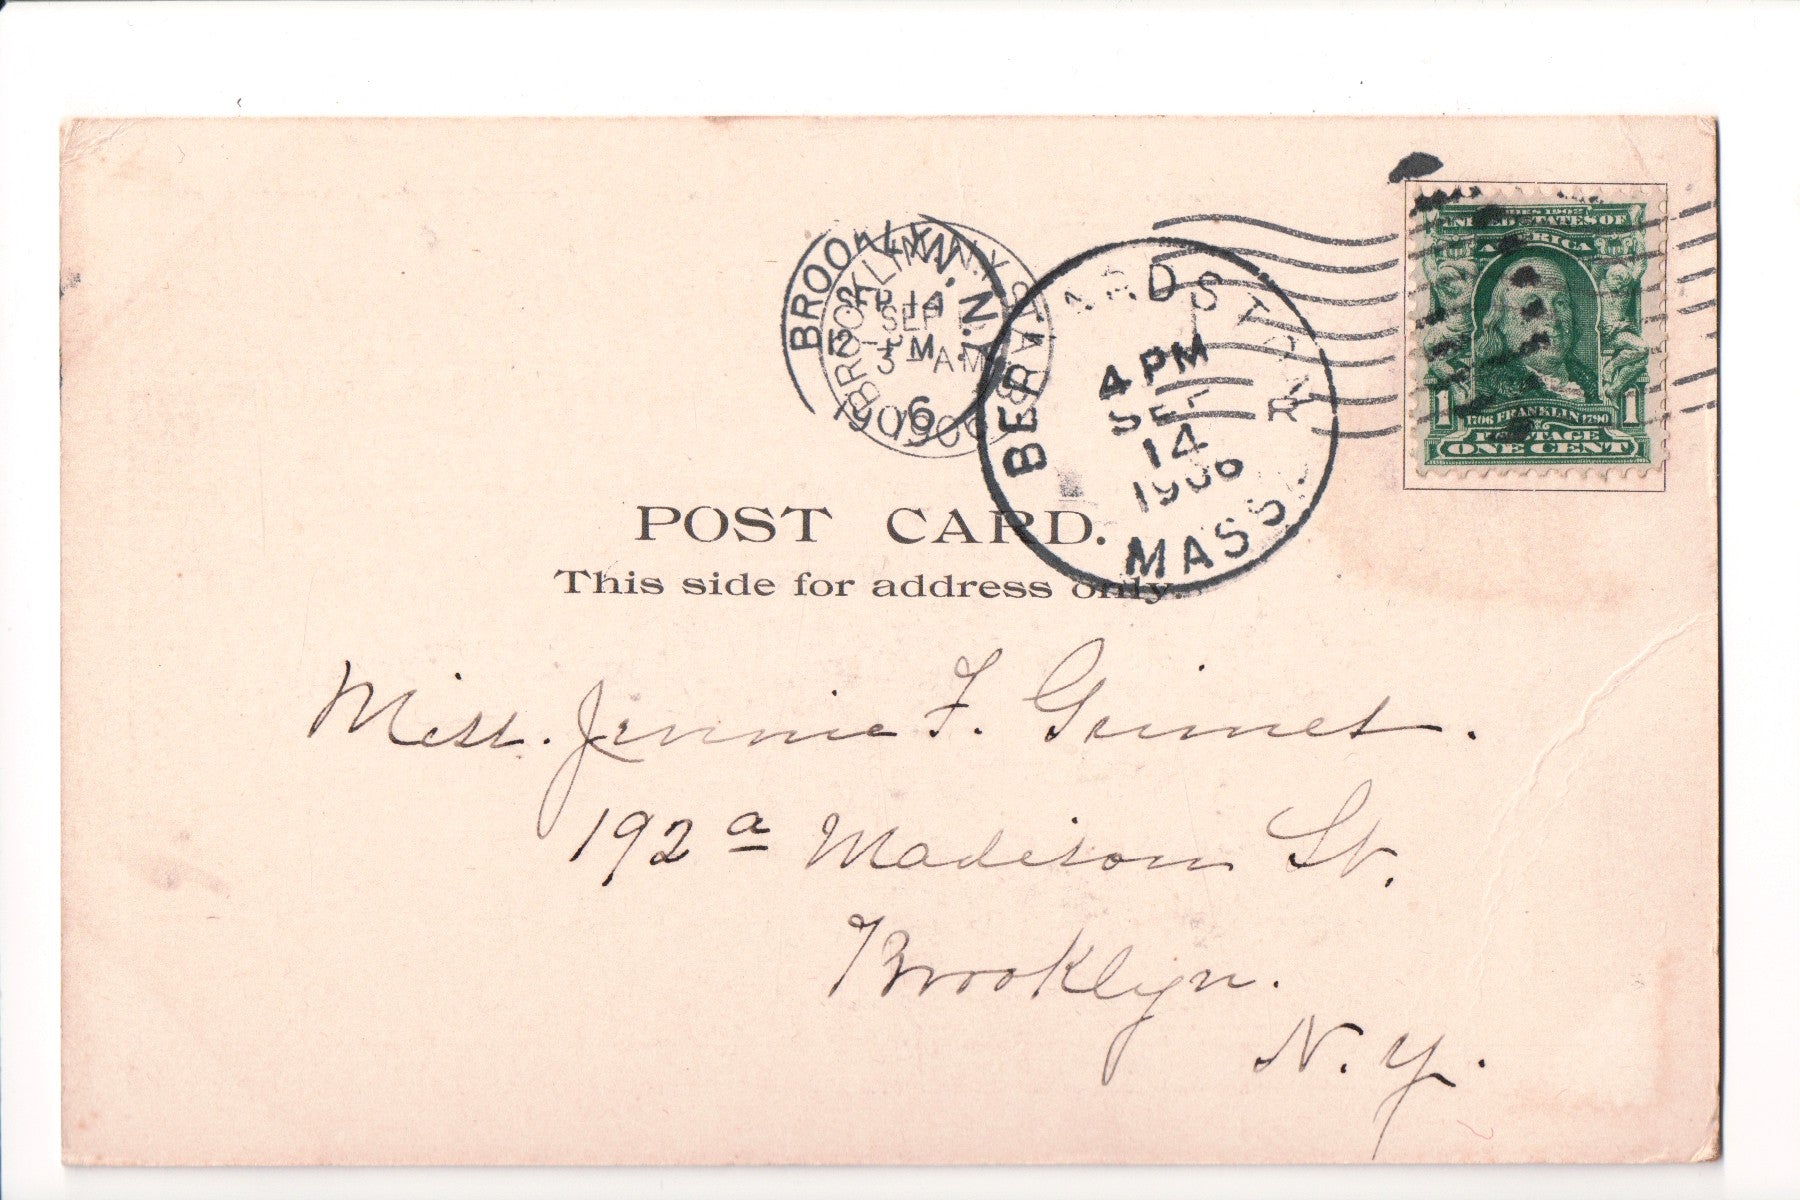 BROOKLYN, N.Y.
SEP 14
12 - PM
6
BROOKLYN, N.Y. STA.
SEP
3 - AM
1906
BERNARDSTON
4 PM
SEP
14
1906
MASS.
SERIES 1902
UNITED STATES OF
AMERICA
1 1706 FRANKLIN 1790 1
POSTAGE
ONE CENT
POST CARD.
This side for address only.
Miss. Jennie F. Grimes.
192 a Madison St.
Brooklyn.
N. Y.